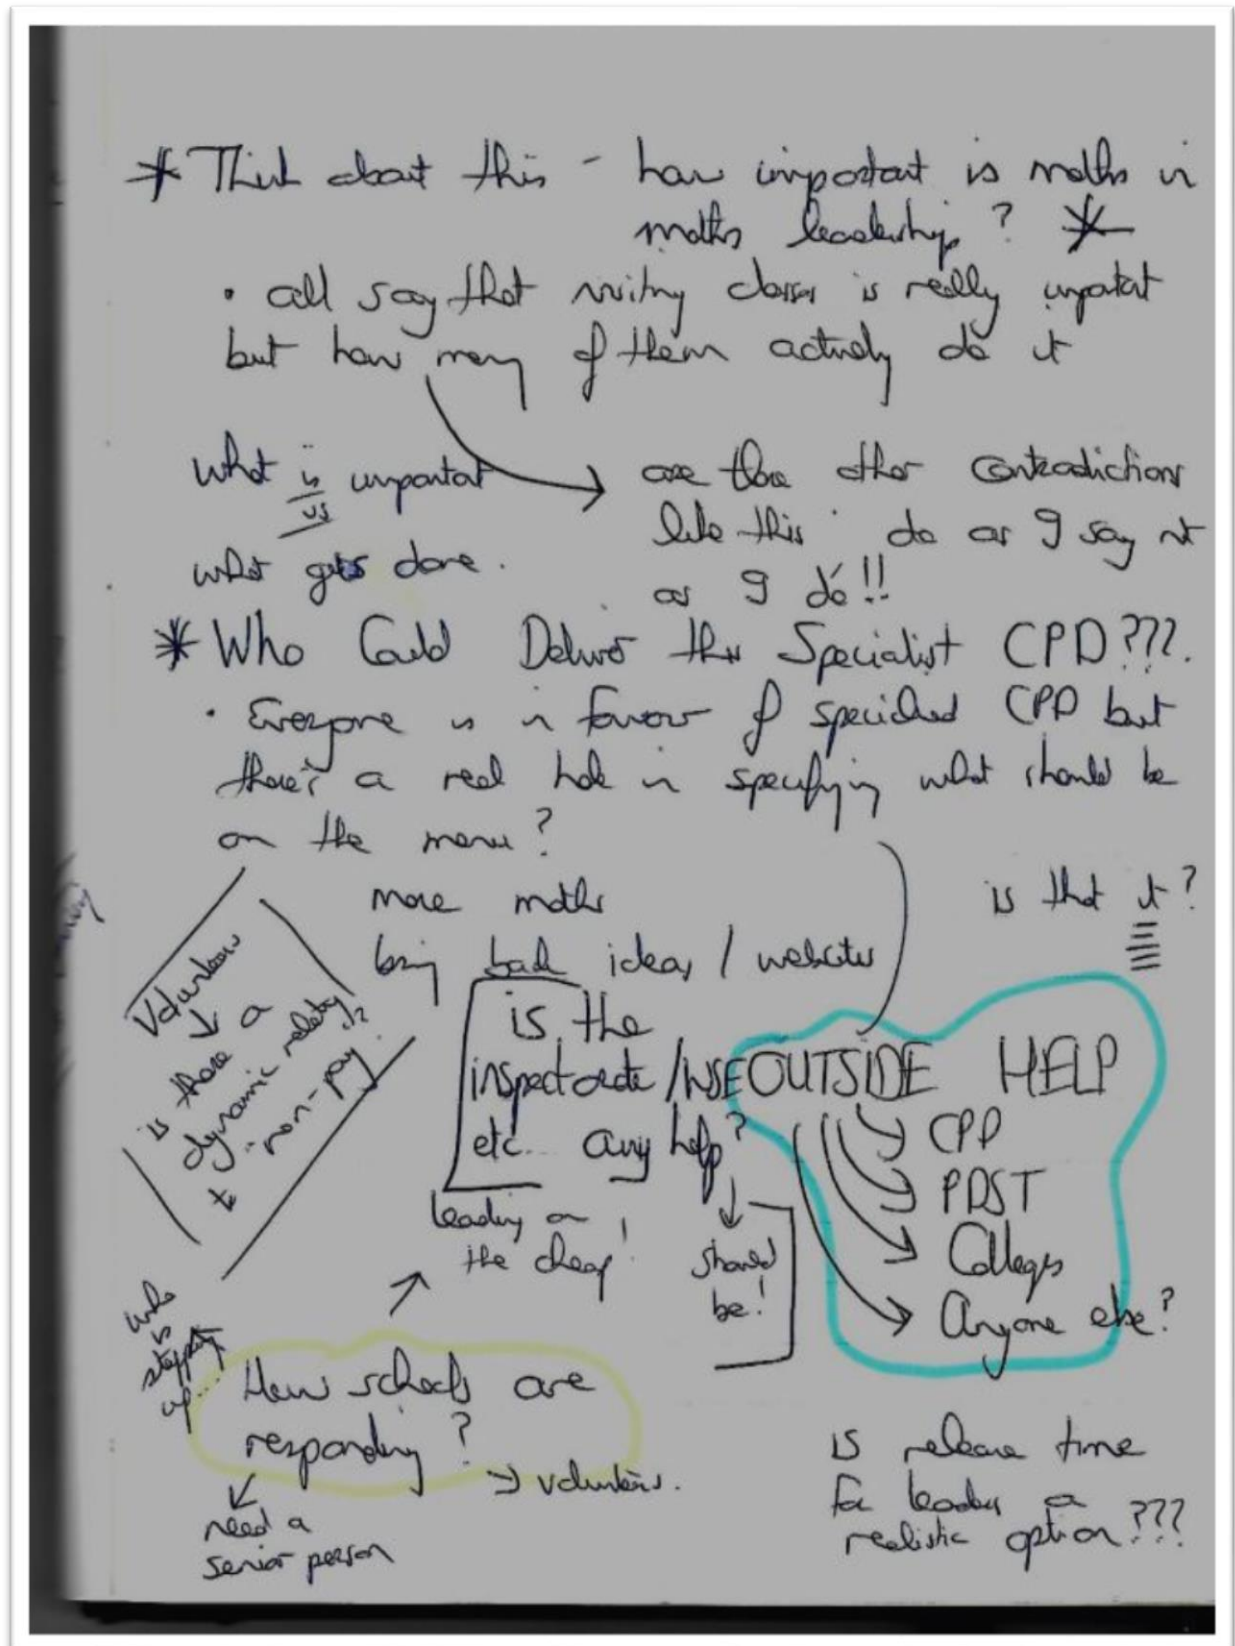 * Think about this - how important is maths in
maths leadership? *
• all say that visiting classes is really important
but how many of them actually do it
what is important
vs
what gets done.
are there other contradictions
like this · do as I say not
as I do!!
* Who Could Deliver this Specialist CPD???.
• Everyone is in favour of specialised CPD but
there's a real hole in specifying what should be
on the menu?
more maths
bring back ideas / websites
is that it?
Volunteers
is there a
dynamic relating
to non-pay
is the
inspectorate / WSE
etc... any help?
should
be!
leading on
the cheap!
OUTSIDE HELP
CPD
PDST
Colleges
Anyone else?
who
is
stepping
up...
How schools are
responding?
→ volunteers.
need a
senior person
is release time
for leaders a
realistic option???